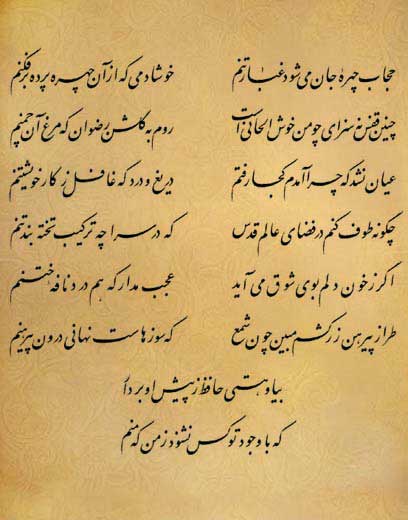 حجاب چهرهٔ جان می‌شود غبار تنم خوشا دمی که از آن چهره پرده برفکنم
چنین قفس نه سزای چو من خوش الحانی است روم به گلشن رضوان که مرغ آن چمنم
عیان نشد که چرا آمدم کجا رفتم دریغ و درد که غافل ز کار خویشتنم
چگونه طوف کنم در فضای عالم قدس که در سراچه ترکیب تخته بند تنم
اگر ز خون دلم بوی شوق می‌آید عجب مدار که هم درد نافه ختنم
طراز پیرهن زرکشم مبین چون شمع که سوزهاست نهانی درون پیرهنم
بیا و هستی حافظ ز پیش او بردار
که با وجود تو کس نشنود ز من که منم